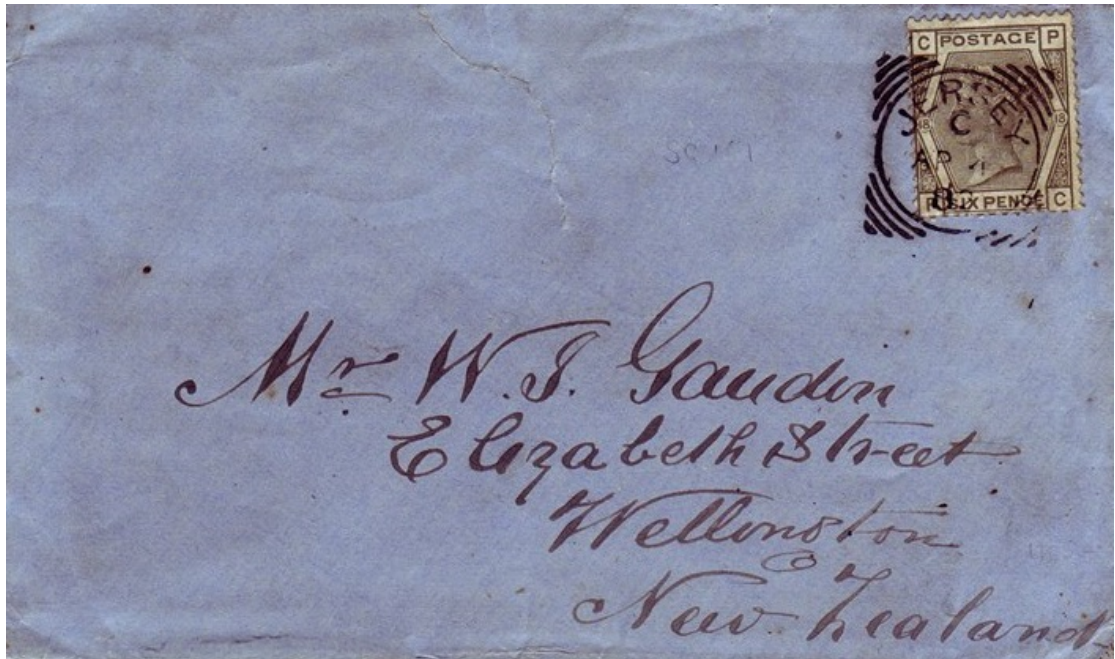 C POSTAGE P
JERSEY
C
18 18
AP
SIX PENCE C
Mr W. J. Gaudin
Elizabeth Street
Wellington
New Zealand